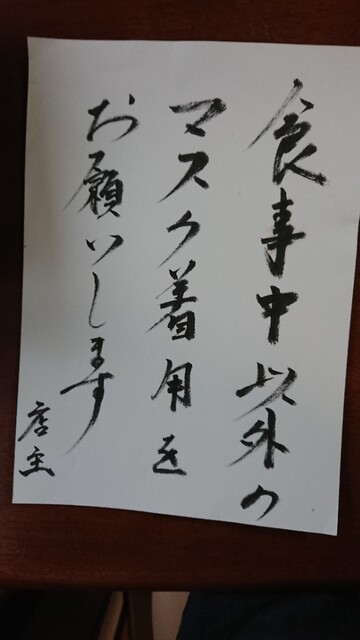 食事中以外の
マスク着用を
お願いします
店主